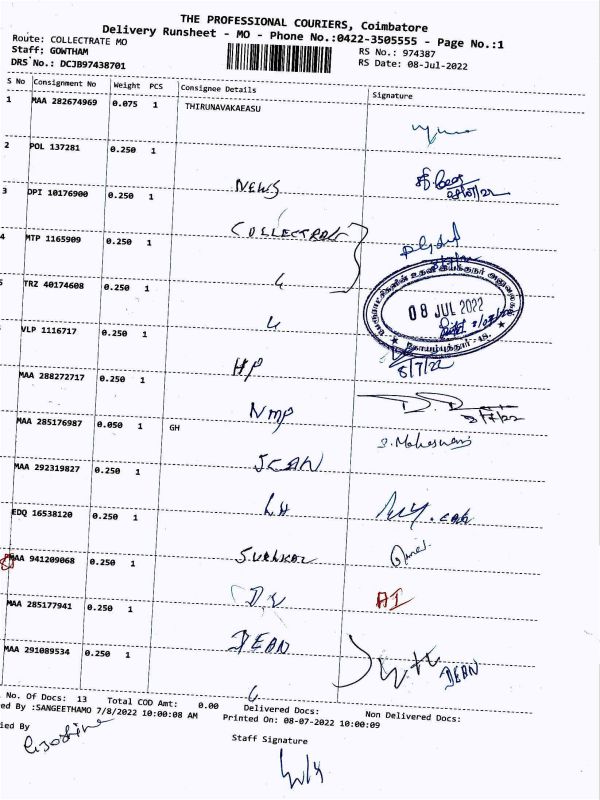 THE PROFESSIONAL COURIERS, Coimbatore
Delivery Runsheet - MO - Phone No.:0422-3505555 - Page No.:1
Route: COLLECTRATE MO
RS No.: 974387
Staff: GOWTHAM
RS Date: 08-Jul-2022
DRS No.: DCJB97438701
S No Consignment No Weight PCS Consignee Details Signature
1 MAA 282674969 0.075 1 THIRUNAVAKAEASU
2 POL 137281 0.250 1 NEWS
3 DPI 10176900 0.250 1 COLLECTRATE
4 MTP 1165909 0.250 1
TRZ 40174608 0.250 1
08 JUL 2022
VLP 1116717 0.250 1 HP
8/7/22
MAA 288272717 0.250 1 NMP
8/7/22
MAA 285176987 0.050 1 GH
S. Maheswari
SCAN
MAA 292319827 0.250 1 LH
EDQ 16538120 0.250 1
MAA 941209068 0.250 1 D.V AI
MAA 285177941 0.250 1 DEAN
DEAN
MAA 291089534 0.250 1
No. Of Docs: 13 Total COD Amt: 0.00 Delivered Docs: Non Delivered Docs:
ed By :SANGEETHAMO 7/8/2022 10:00:08 AM Printed On: 08-07-2022 10:00:09
ied By
Staff Signature